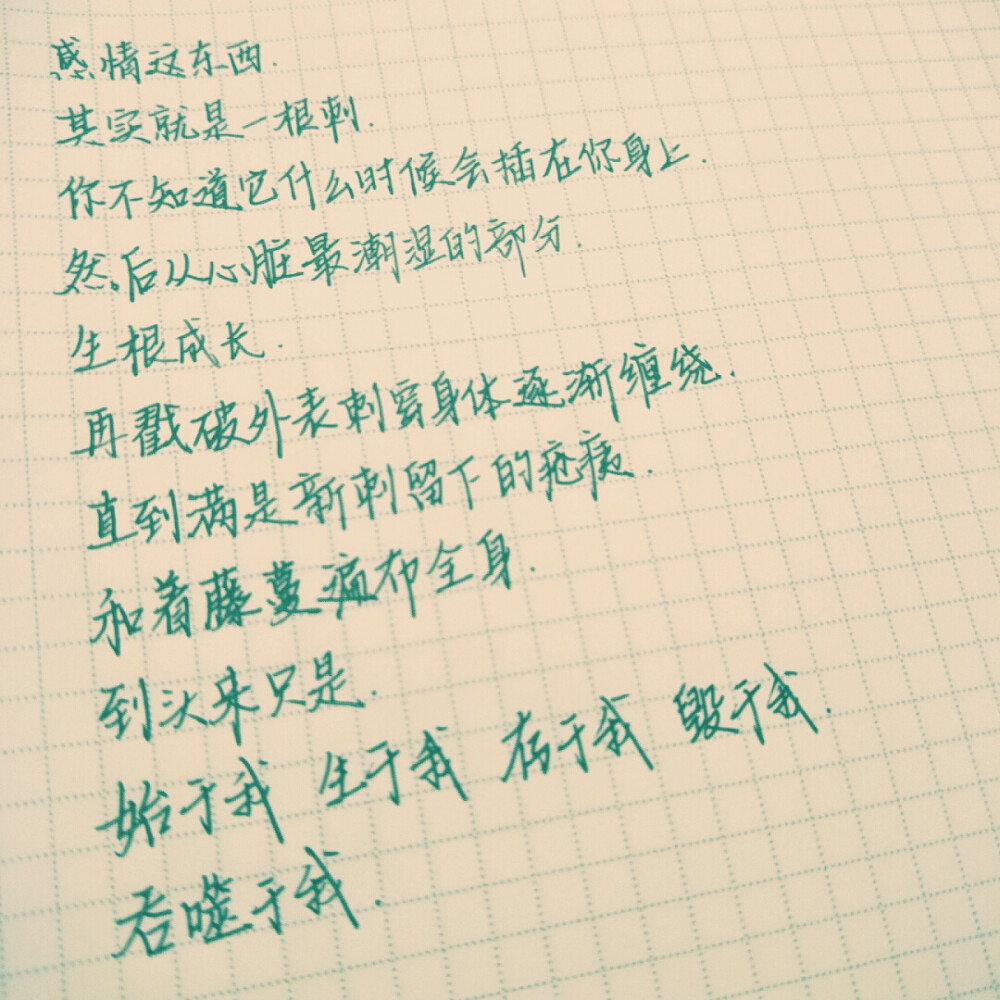 感情这东西.
其实就是一根刺.
你不知道它什么时候会插在你身上.
然后从心脏最潮湿的部分.
生根成长.
再戳破外表刺穿身体逐渐缠绕.
直到满是新刺留下的疮痍.
和着藤蔓遍布全身.
到头来只是.
始于我 生于我 存于我 毁于我.
吞噬于我.